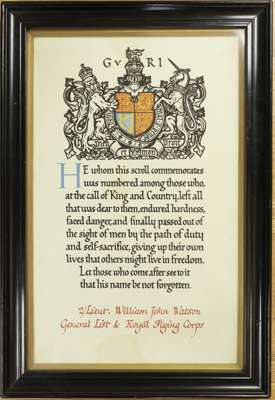 G V R I
HE whom this scroll commemorates
was numbered among those who,
at the call of King and Country, left all
that was dear to them, endured hardness,
faced danger, and finally passed out of
the sight of men by the path of duty
and self-sacrifice, giving up their own
lives that others might live in freedom.
Let those who come after see to it
that his name be not forgotten.
2/Lieut. William John Watson
General List & Royal Flying Corps